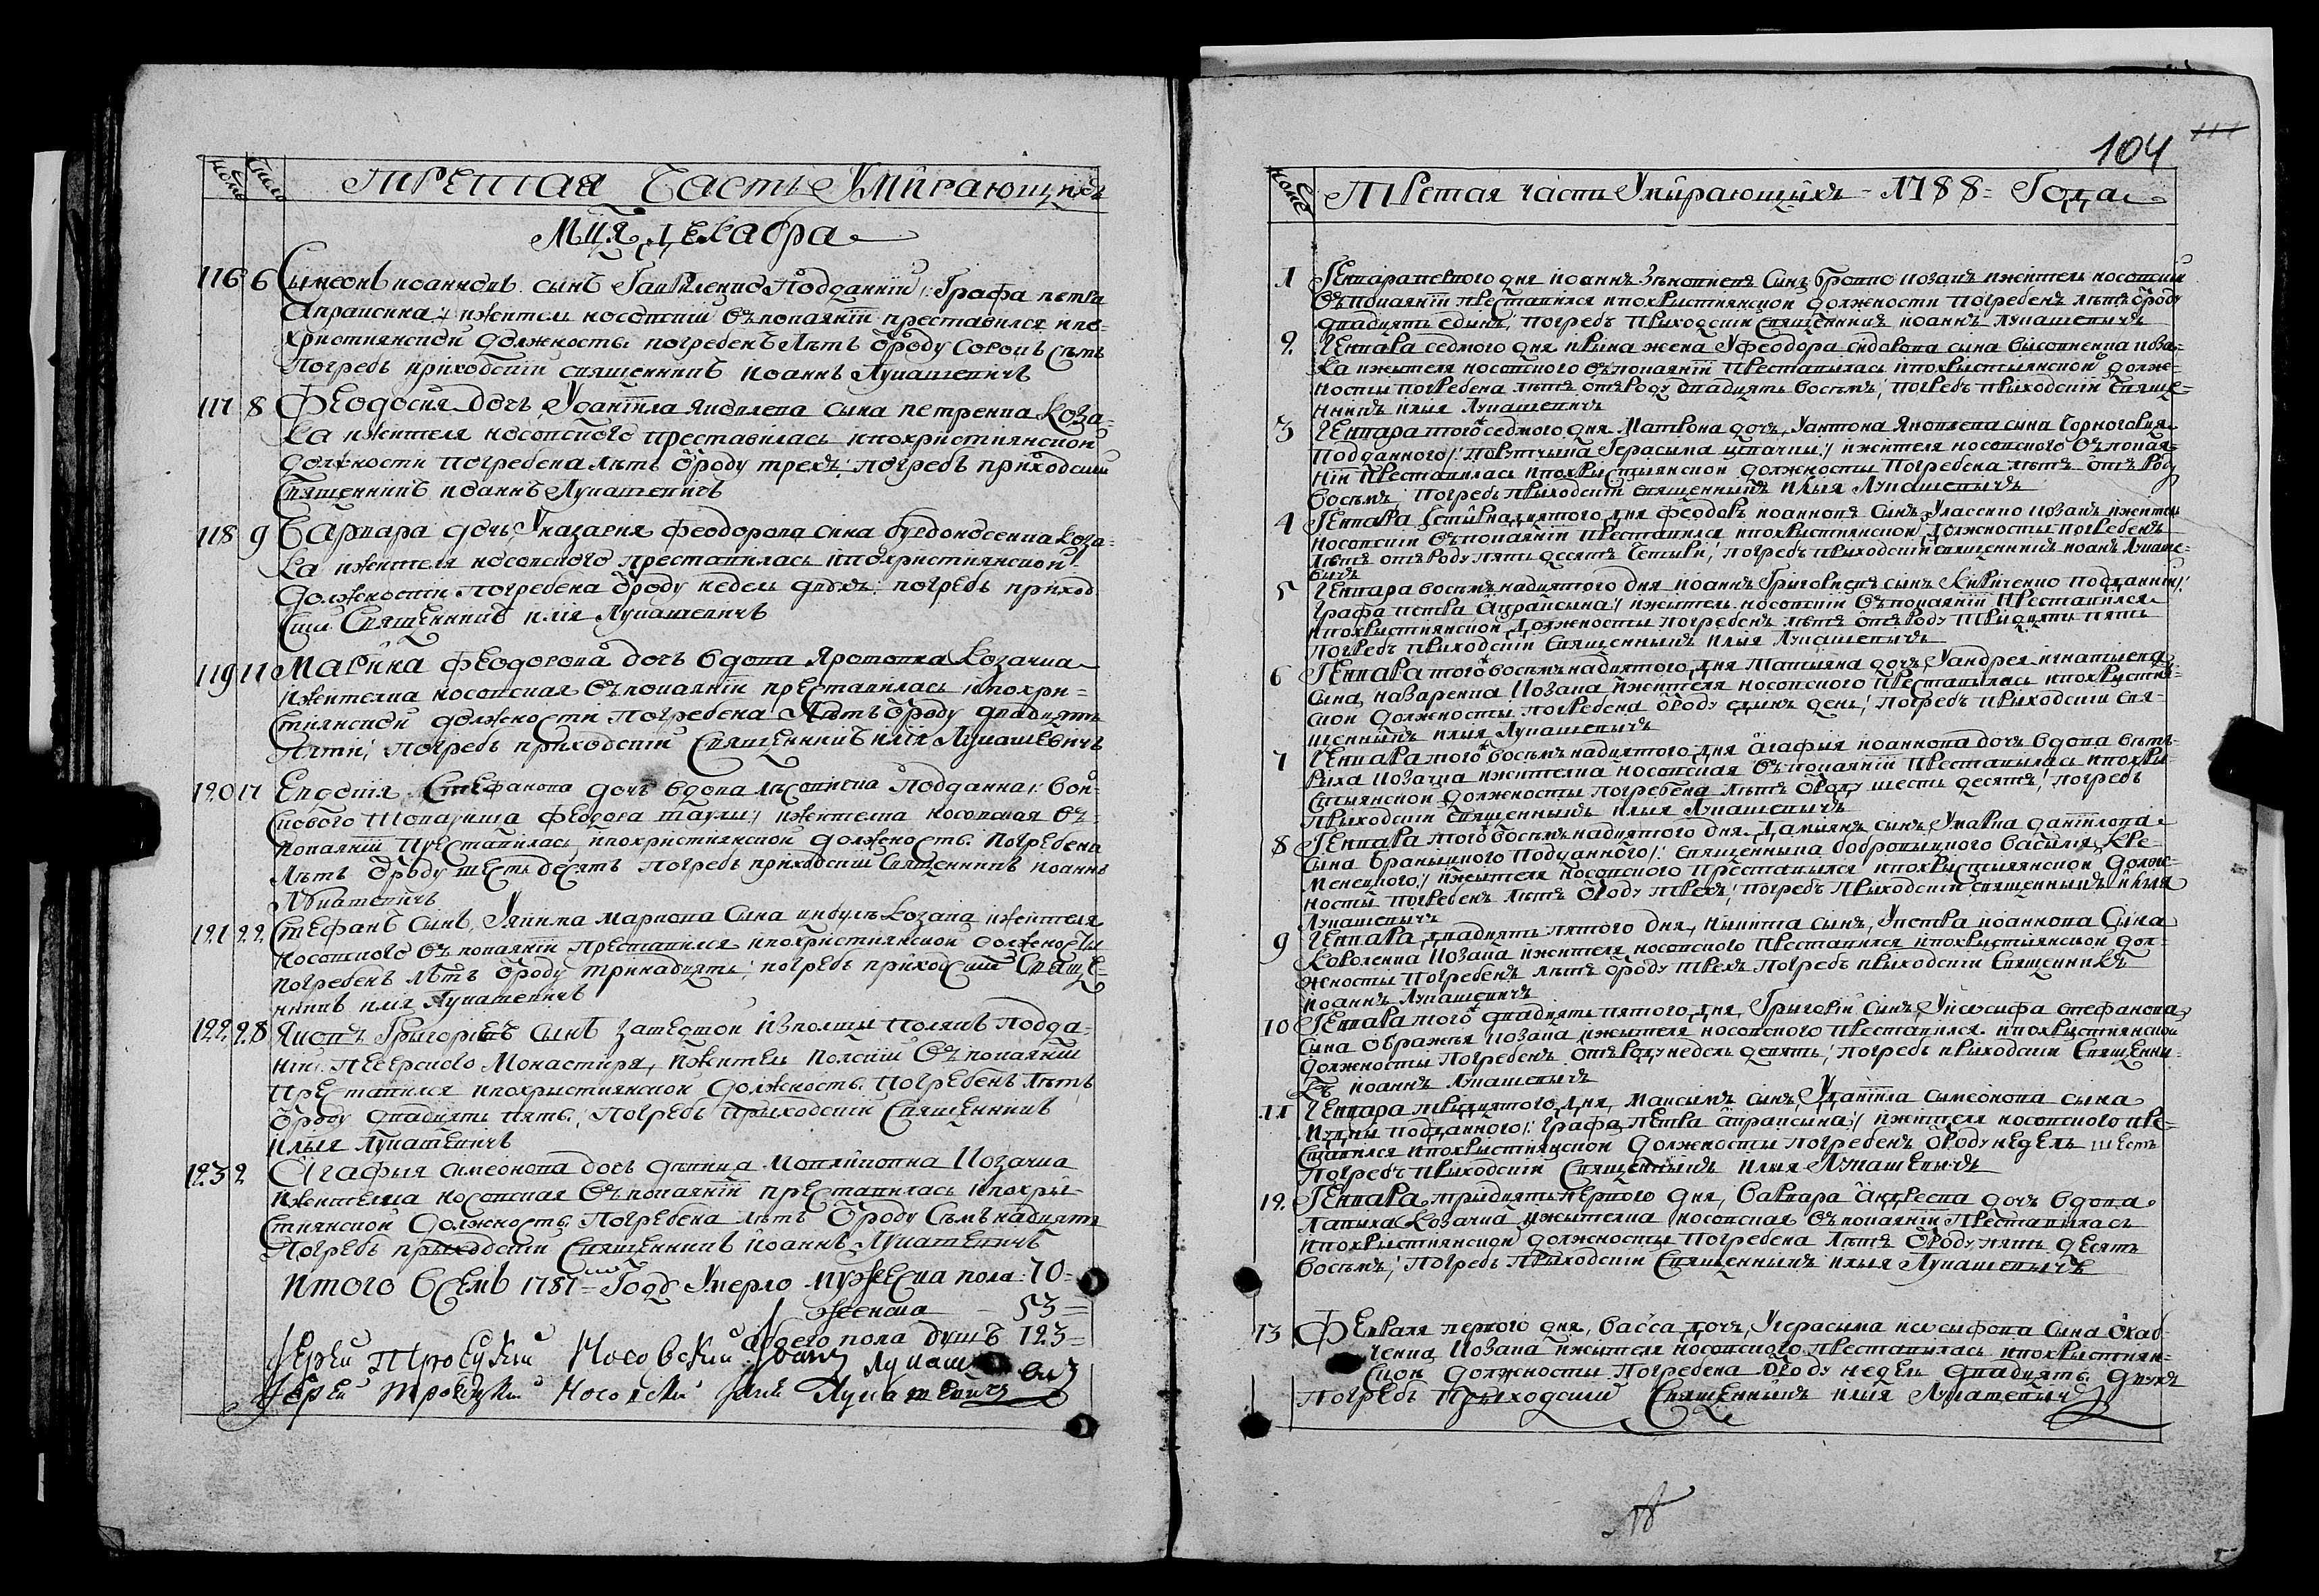 Номе Число Третая Часть Умирающихъ
Мця Декабра
116 6 Сымеонъ иоанновъ сынъ Гавриленко Подданний /: Графа петра
Апраксина :/ и житель носовский съ покаяніи преставился и по-
християнской должности погребенъ лѣтъ ѿроду Сорокъ
Погребъ приходский священникъ иоаннъ Лукашевичъ
117 8 Феодосия дочь, Уданіила Яковлева сына петренка коза-
ка и жителя носовского преставилась и по християнской
должности Погребена лѣтъ ѿроду трехъ; погребъ приходский
Священникъ иоаннъ Лукашевичъ
118 9 Варвара дочь, Уназария Феодорова сина коза-
ка и жителя носовского преставилась и по християнской
должности погребена ѿроду недель двохъ; погребъ приход
ский Священникъ илія Лукашевичъ
119 11 Марина Феодорова дочъ вдова Козачка
и жителка носовская съ покаяніи преставилась и по хри-
стиянской должности Погребена Лѣтъ ѿроду двадцять
пяти; погребъ приходский Священникъ илія Лукашевичъ
120 17 Евдокія Стефанова дочъ вдова Подданна /: вой-
скового Товарища Феодора :/ и жителка носовская съ
покаяніи Преставилась, и по християнской должность. Погребена
лѣтъ ѿроду шестьдесятъ Погребъ приходский Священникъ иоаннъ
Лукашевичъ
121 22 Стефанъ Синъ, Уякима маркова Сина козака и жителя
Носовского съ покаяніи Преставился и по християнской должности
погребенъ лѣтъ ѿроду тринадцять; погребъ приходский Свяще-
нникъ илія Лукашевичъ
122 28 Яковъ Григориевъ сынъ зашедшой изполщи полякъ подда-
ній Печерского Монастиря, и житель съ покаяніи
Преставился и по християнской должность. Погребенъ Лѣтъ
ѿроду двадцять пять; Погребъ Приходский Священникъ
Илыя Лукашевичъ
123 2 Агафия симеонова дочъ девица Козачка
и жителка носовская съ покаяніи преставилась и по хри-
стиянской должность. Погребена лѣтъ ѿроду Семънадцять
Погребъ приходский Священникъ иоаннъ Лукашевичъ
Итого Всѣмъ 1787 Году Умерло мужеска пола 70
женска - 53 =
обоего пола душъ 123 =
Іерей Троецкий Носовский Іоанъ Лукашевичъ
Іерей троецкий Носовский Лукашевичъ
104
Номе Третая часть Умирающихъ - 1788 - Года
1 Генвара первого дня иоаннъ синъ козакъ и житель носовский
съ покаяніи преставился и по християнской должности Погребенъ лѣтъ ѿроду
двадцять единъ; погребъ Приходский священникъ иоаннъ Лукашевичъ
2 Генвара седмого дня ирина жена Уфеодора сидорова сына коза-
ка и жителя носовского съ покаяніи Преставилась и по християнской долже-
ности погребена лѣтъ отъ роду двадцять восемъ; погребъ приходский Свяще-
нникъ илыя Лукашевичъ
3 Генвара того седмого дня Матрона дочъ, Уантона Яковлева сина
Подданного /: Герасима :/ и жителя носовского съ покая-
ніи Преставилась и по християнской должности Погребена лѣтъ отъ Роду
восемъ Погребъ приходский священникъ илыя Лукашевичъ
4 Генвара Четирнадцятого дня феодоръ иоанновъ Синъ Уласенко козакъ и житель
носовский съ покаяніи преставился и по християнской должности погребенъ
лѣтъ отъ Роду пять десятъ Четыри; погребъ приходский священникъ иоанъ Лукаше-
вичъ
5 Генвара восемънадцятого дня иоаннъ Григориевъ сынъ Кириченко подданний /:
Графа петра Апраксина :/ и житель носовский съ покаяніи Преставился
и по християнской должности погребенъ лѣтъ отъ роду Тридцять пять
погребъ приходский священникъ илыя Лукашевичъ
6 Генвара того восемънадцятого дня Матияна дочъ, Уандрея игнатиева
Сына назаренка козака и жителя носовского преставилась и по християн-
ской должности погребена ѿроду единъ день; погребъ приходский свя-
щенникъ илыя Лукашевичъ
7 Генвара того восемънадцятого дня агафия иоаннова дочъ вдова
козачка и жителка носовская съ покаяніи Преставилась и по хри-
стиянской должности погребена лѣтъ ѿроду шестъ десятъ; погребъ
приходский священникъ илыя Лукашевичъ
8 Генвара того восемънадцятого дня Дамиянъ синъ, Умарка данііилова
Сына Подданного /: священника Василия Кре-
менецкого :/ и жителя носовского Преставился и по християнской долже-
ности погребенъ лѣтъ ѿроду трехъ; погребъ приходский священникъ илия
Лукашевичъ
9 Генвара, двадцять пятого дня, никита синъ, Упетра иоаннова Сина
Коваленка Козака и жителя носовского преставился и по християнской дол-
жности погребенъ лѣтъ ѿроду трехъ Погребъ приходский Священникъ
иоаннъ Лукашевичъ
10 Генвара того двадцять пятого дня, Григорий Синъ, Уиосифа стефанова
Сына козака и жителя носовского преставился и по християнской
должности Погребенъ отъ роду недель девять; погребъ приходский Священни-
къ иоаннъ Лукашевичъ
11 Генвара тридцятого дня, максимъ синъ, Уданіила симеонова сина
подданного /: графа Петра апраксина :/ и жителя носовского пре-
ставился и по християнской должности погребенъ ѿроду недель шесть
Погребъ приходский Священникъ илыя Лукашевичъ
12 Генвара тридцять первого дня, варвара андреева дочъ вдова
Козачка и жителка носовская съ покаяніи Преставилась
и по християнской должности погребена лѣтъ ѿроду пять десятъ
восемъ; погребъ приходский Священникъ илыя Лукашевичъ
13 Февраля первого дня, васса дочъ, Угерасима иосифова Сина
козака и жителя носовского преставилась и по християн-
ской должности Погребена ѿроду недель двадцять двухъ
погребъ приходский Священникъ илыя Лукашевичъ